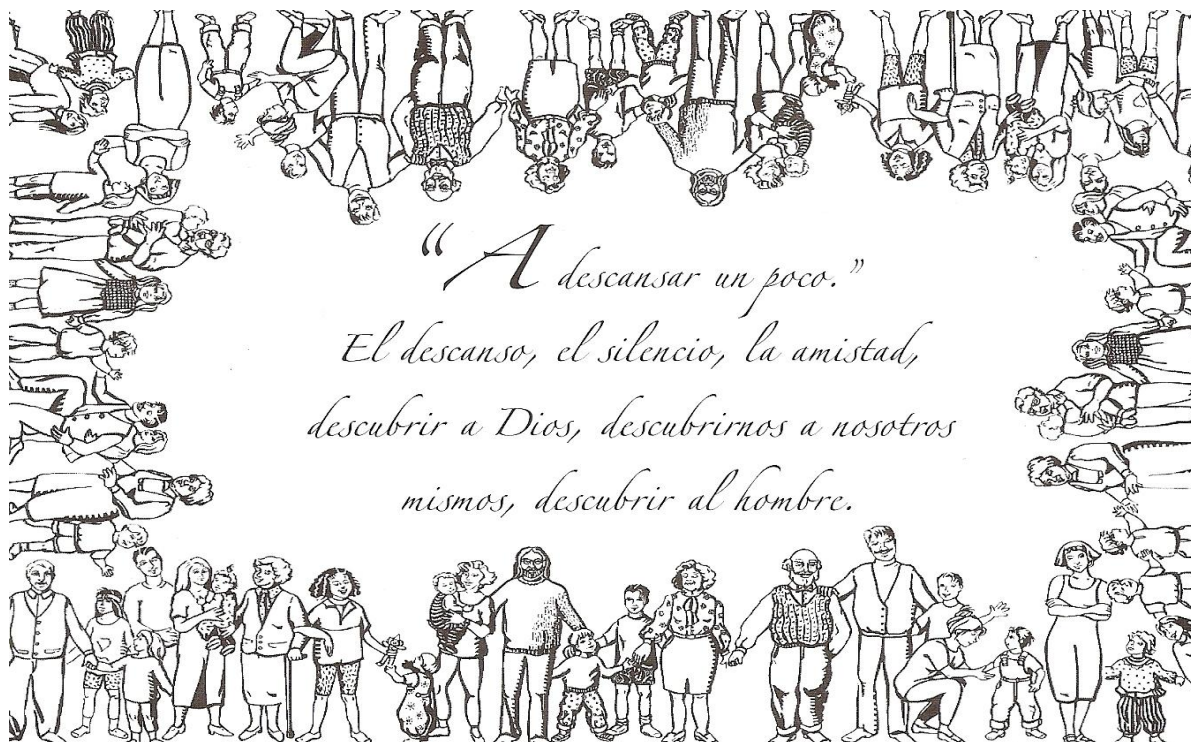 “A descansar un poco.”
El descanso, el silencio, la amistad,
descubrir a Dios, descubrirnos a nosotros
mismos, descubrir al hombre.